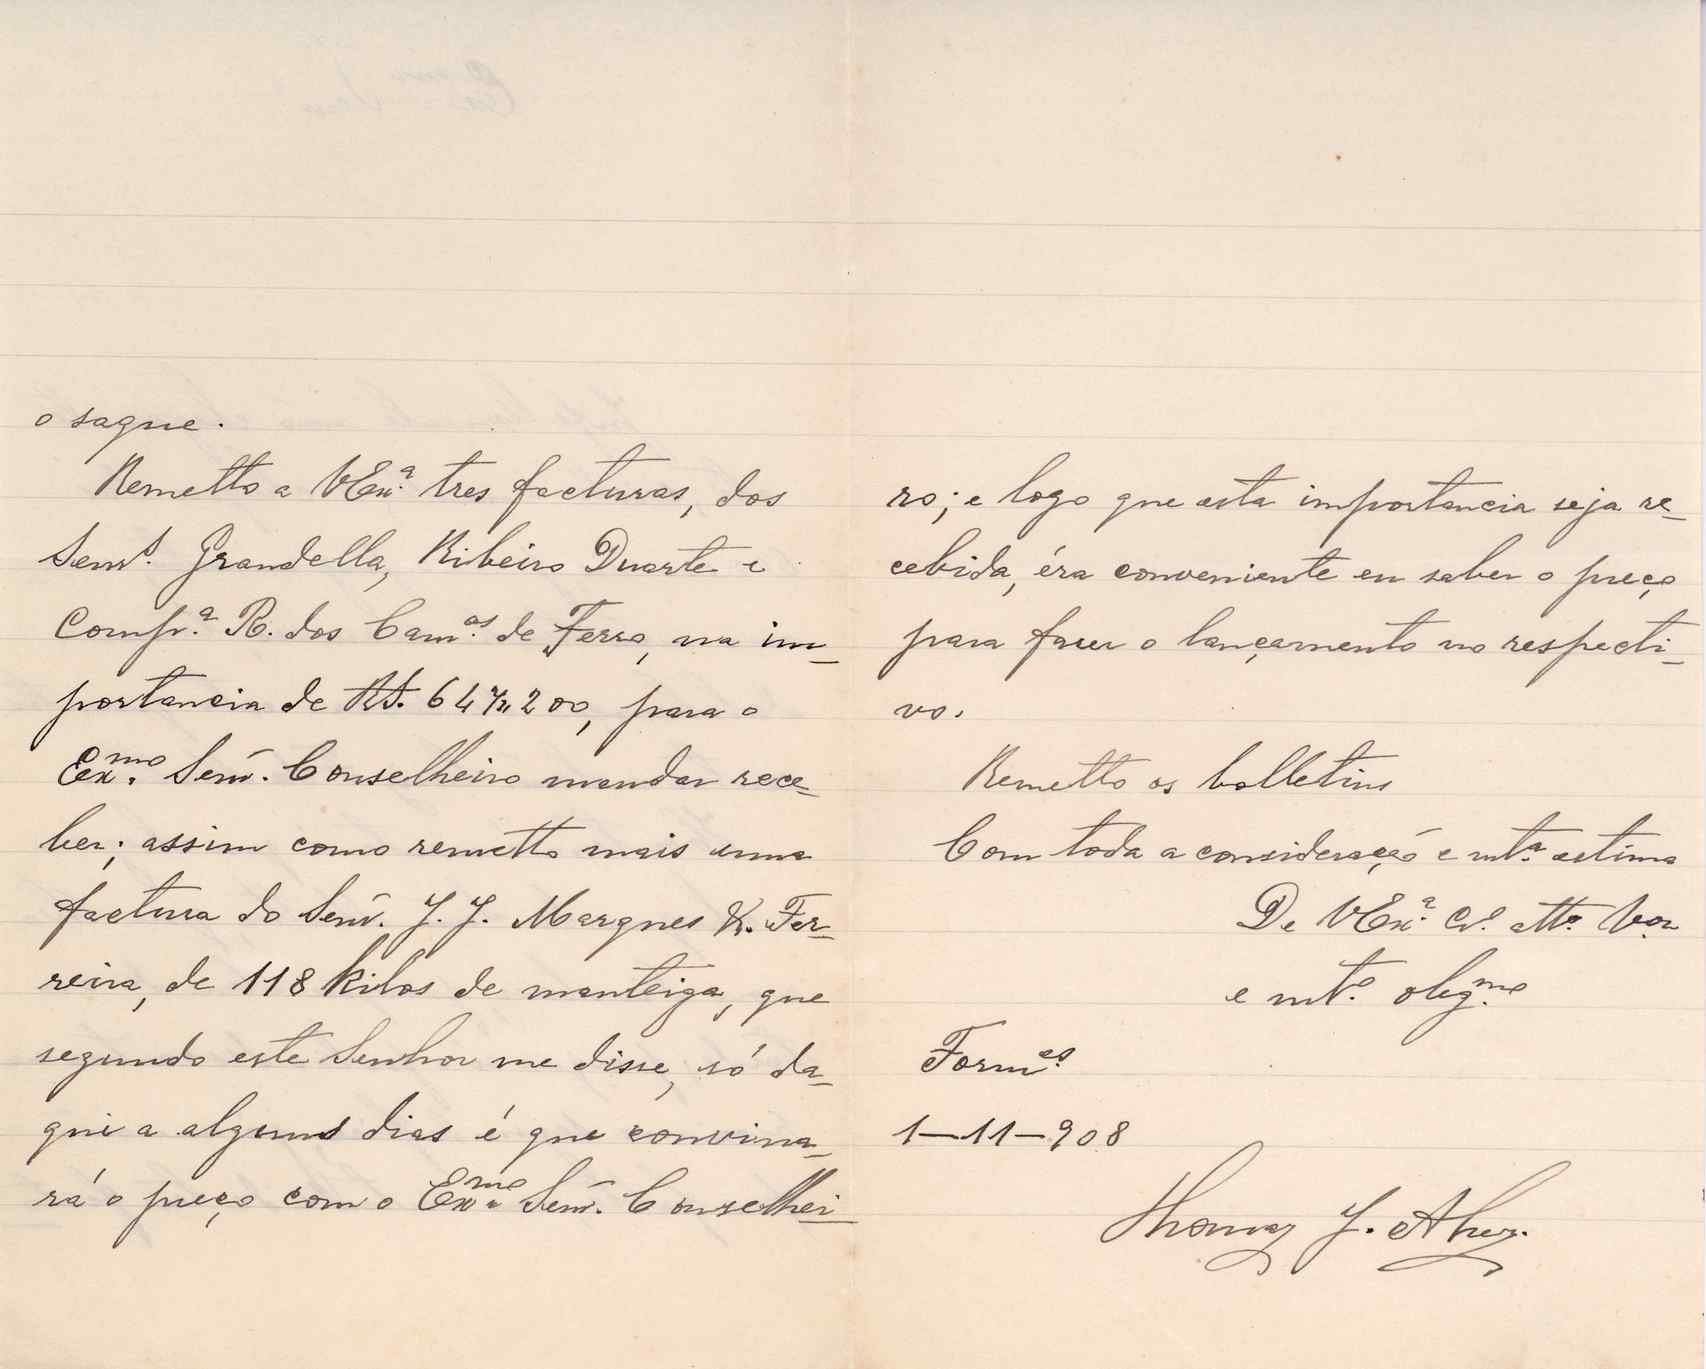 o saque.
Remetto a VExª. tres facturas, dos
Senrs. Grandella, Ribeiro Duarte e
Compª. R. dos Camos. de Ferro, na im-
portancia de RS. 647$200, para o
Exmo. Senr. Conselheiro mandar rece-
ber; assim como remetto mais uma
factura do Senr. J. J. Marques & Fer-
reira, de 118 kilos de manteiga, que
segundo este Senhor me disse, só da-
qui a alguns dias é que convina-
rá o preço com o Exmo. Senr. Conselhei-
ro; e logo que esta importancia seja re-
cebida, éra conveniente eu saber o preço
para fazer o lançamento no respecti-
vo.
Remetto os bolletins
Com toda a consideração e mtª. estima
De VExª. Cdº. attº. Vor.
e mtº. obgmo.
Formes.
1-11-908
Thomaz J.